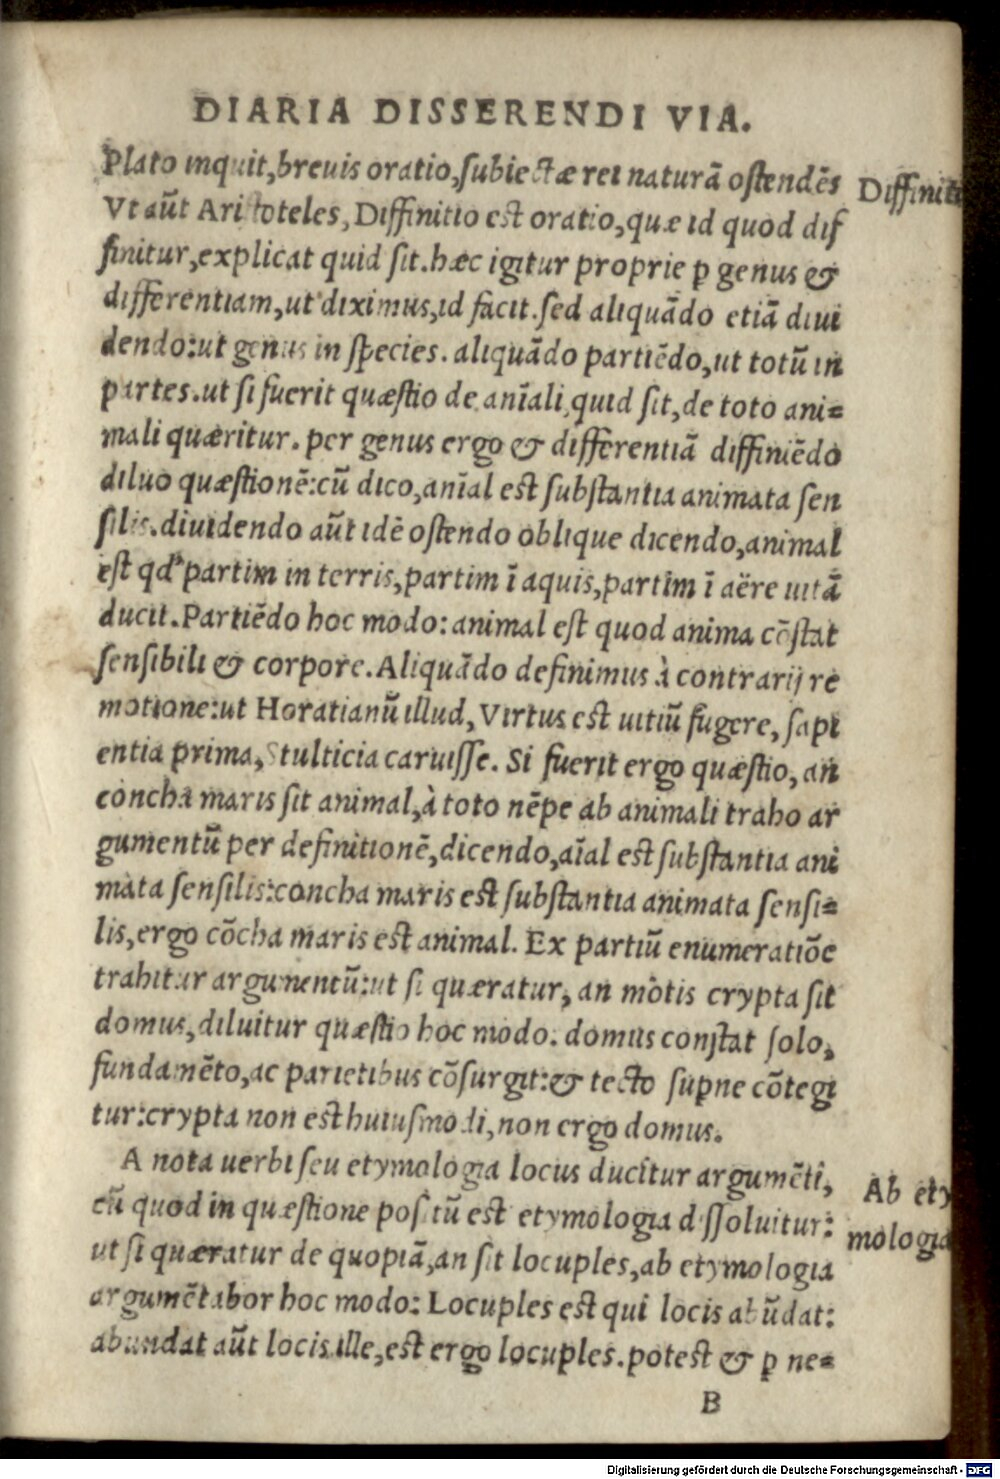 DIARIA DISSERENDI VIA.
Plato inquit, breuis oratio, subiectæ rei naturã ostendẽs
Diffiniti
Vt aũt Aristoteles, Diffinitio est oratio, quæ id quod dif
finitur, explicat quid sit. hæc igitur proprie ꝑ genus &
differentiam, ut diximus, id facit. sed aliquãdo etiã diui
dendo: ut genus in species. aliquãdo partiẽdo, ut totũ in
partes. ut si fuerit quæstio de anĩali, quid sit, de toto ani=
mali quæritur. per genus ergo & differentiã diffiniẽdo
diluo quæstionẽ: cũ dico, anĩal est substantia animata sen
silis. diuidendo aũt idẽ ostendo oblique dicendo, animal
est qd' partim in terris, partim ĩ aquis, partim ĩ aëre uitã
ducit. Partiẽdo hoc modo: animal est quod anima cõstat
sensibili & corpore. Aliquãdo definimus à contrarij re
motione: ut Horatianũ illud, Virtus est uitiũ fugere, sapi
entia prima, Stulticia caruisse. Si fuerit ergo quæstio, an
concha maris sit animal, à toto nẽpe ab animali traho ar
gumentũ per definitionẽ, dicendo, aĩal est substantia ani
mata sensilis: concha maris est substantia animata sensi=
lis, ergo cõcha maris est animal. Ex partiũ enumeratiõe
trahitur argumentũ: ut si quæratur, an mõtis crypta sit
domus, diluitur quæstio hoc modo. domus constat solo,
fundamẽto, ac parietibus cõsurgit: & tecto suꝑne cõtegi
tur: crypta non est huiusmodi, non ergo domus.
A nota uerbi seu etymologia locus ducitur argumẽti,
Ab ety
cũ quod in quæstione positũ est etymologia dissoluitur:
mologia
ut si quæratur de quopiã, an sit locuples, ab etymologia
argumẽtabor hoc modo: Locuples est qui locis abũdat:
abundat aũt locis ille, est ergo locuples. potest & ꝑ ne=
B
Digitalisierung gefördert durch die Deutsche Forschungsgemeinschaft - DFG